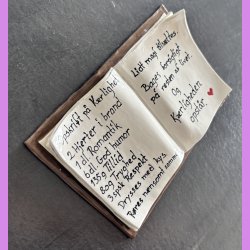 Opskrift på Kærlighed
2 Hjerter i brand
1 dl Romantik
6 dl God humor
135g Tillid
80g Tryghed
3 spsk Respekt
Drysses med kys.
Røres nænsomt sammen
Lidt mag tilsættes.
Bages forsigtigt
på resten af livet
Og
Kærligheden
opstår